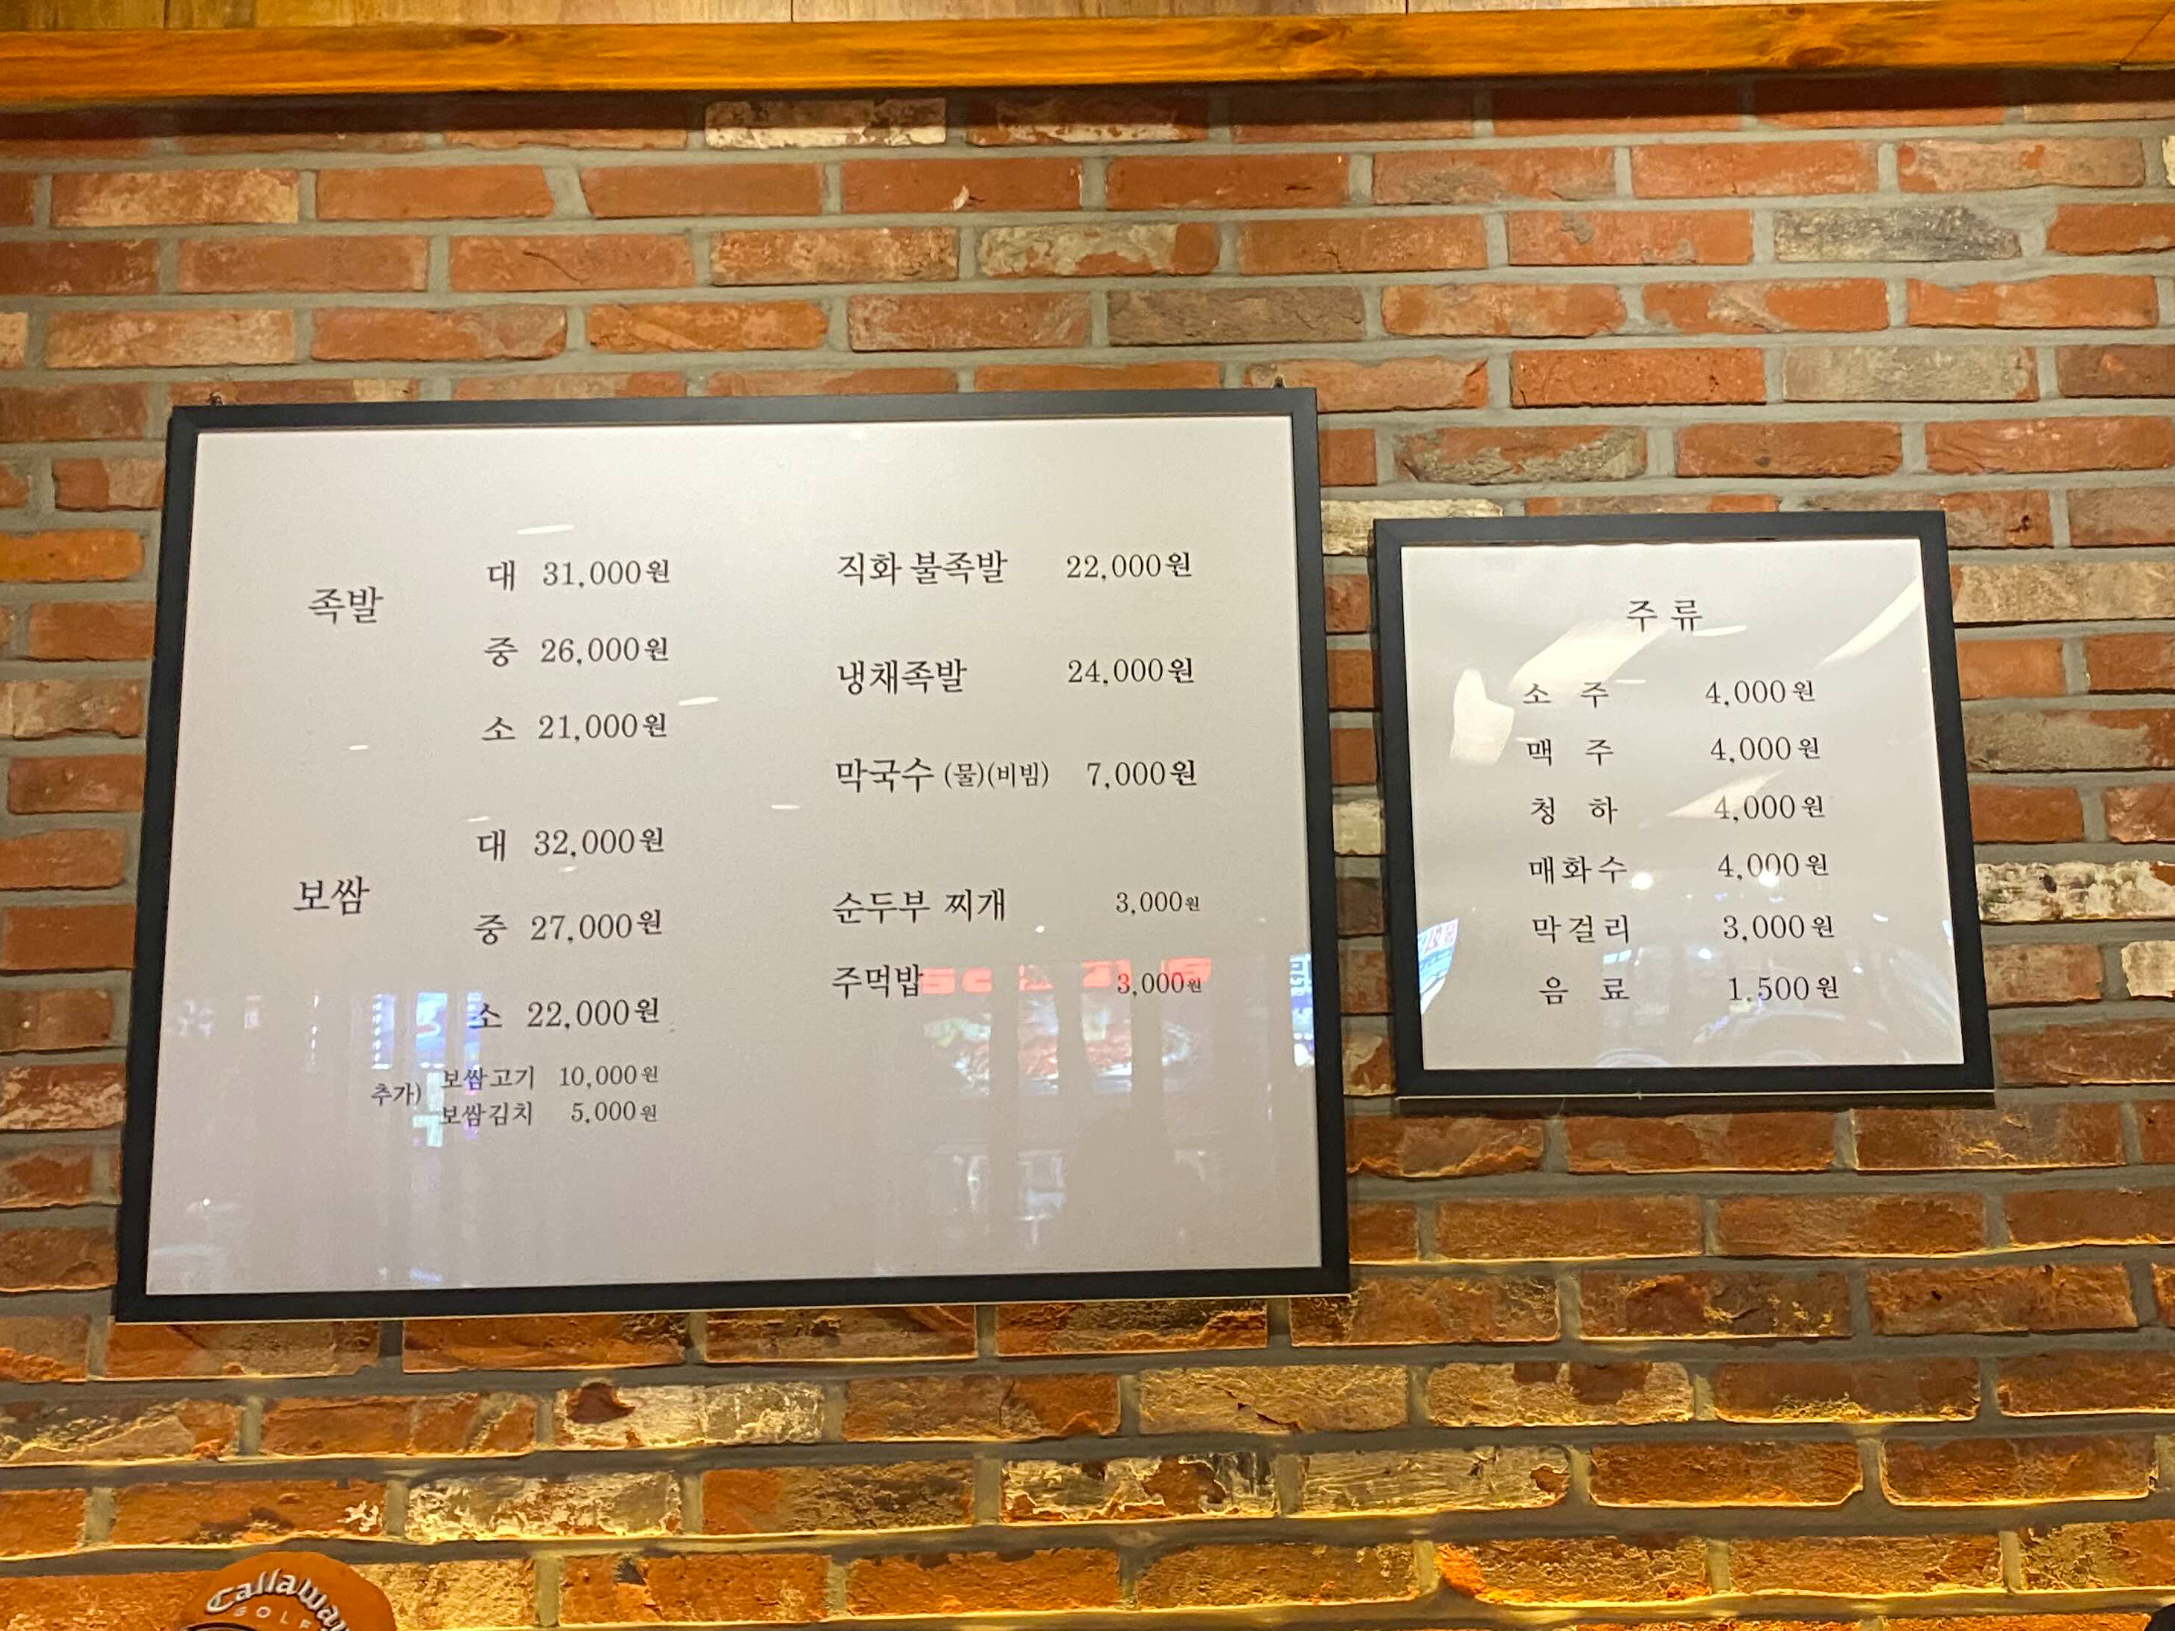 족발
대 31,000원
중 26,000원
소 21,000원
보쌈
대 32,000원
중 27,000원
소 22,000원
추가)
보쌈고기 10,000원
보쌈김치 5,000원
직화 불족발 22,000원
냉채족발 24,000원
막국수 (물)(비빔) 7,000원
순두부 찌개 3,000원
주먹밥 3,000원
주류
소주 4,000원
맥주 4,000원
청하 4,000원
매화수 4,000원
막걸리 3,000원
음료 1,500원
Callaway
GOLF